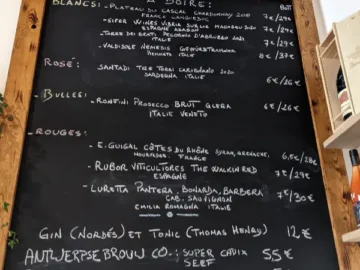 À BOIRE:
BLANCS: - PLATEAU DU CASCAL CHARDONNAY 2018
FRANCE LANGUEDOC 7€/29€
7€/29€
ESPAGNE ARAGON
- TORRE DEI BEATI PECORINO D'ABRUZZO 2021
ITALIE 7€/29€
- VALDISOLE NEMESIS GEWÜRZTRAMINER
ITALIE 8€/37€
ROSÉ: SANTADI TRE TORRI CARIGNANO 2020
SARDEGNA ITALIE 6€/26€
- BULLES: - RONFINI PROSECCO BRUT GLERA 6€/26€
ITALIE VENETO
- ROUGES:
- E. GUIGAL CÔTES DU RHÔNE SYRAH, GRENACHE,
MOURVÈDRE. FRANCE 6,5€/28€
- RUBOR VITICULTORES THE WALKIN RED
ESPAGNE 7€/29€
- LURETTA PANTERA, BONARDA, BARBERA
CAB. SAUVIGNON 7€/30€
EMILIA ROMAGNA ITALIE
GIN (NORDÉS) ET TONIC (THOMAS HENRY) 12€
ANTWERPSE BROUW CO.: SUPER CADIX 55€
SEEF